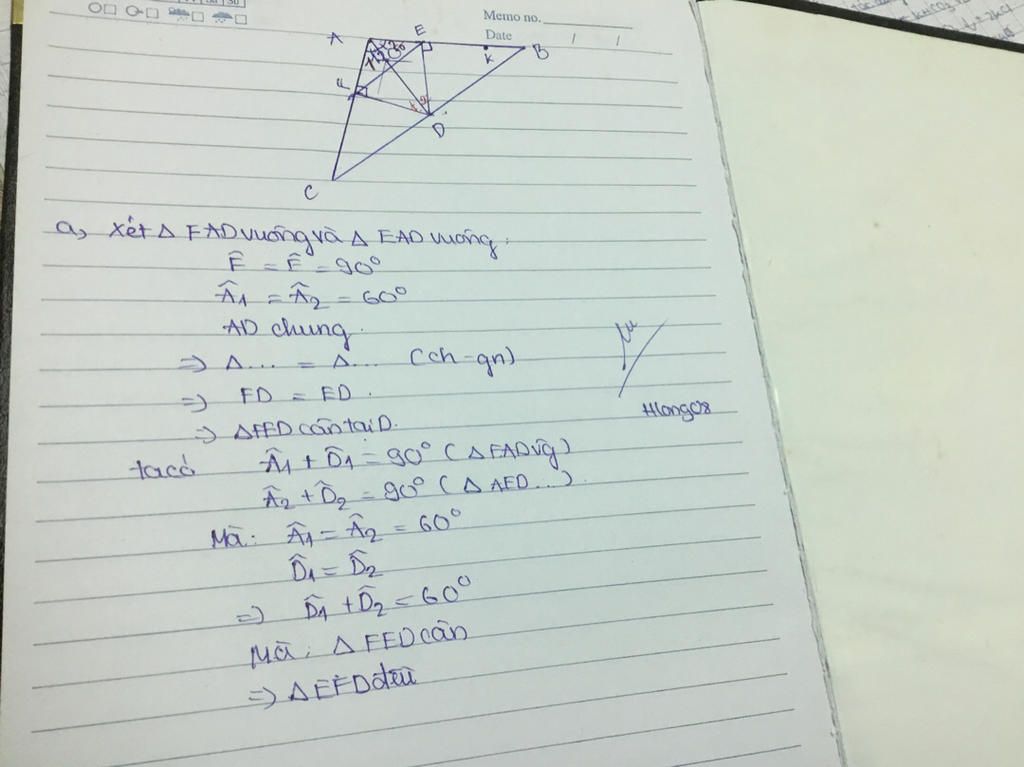 Memo no.
Date / /
A E K B
1 2
F
1 2
D
C
a, Xét Δ FAD vuông và Δ EAD vuông.
Ê = F̂ = 90°
Â1 = Â2 = 60°
AD chung.
=> Δ... = Δ... (ch-gn)
=> FD = ED.
=> ΔFED cân tại D.
ta có Â1 + D̂1 = 90° (Δ FAD vg)
Â2 + D̂2 = 90° (Δ AED...)
Mà: Â1 = Â2 = 60°
D̂1 = D̂2
=> D̂1 + D̂2 = 60°
Mà: Δ FED cân
=> Δ EFD đều
Hlong08